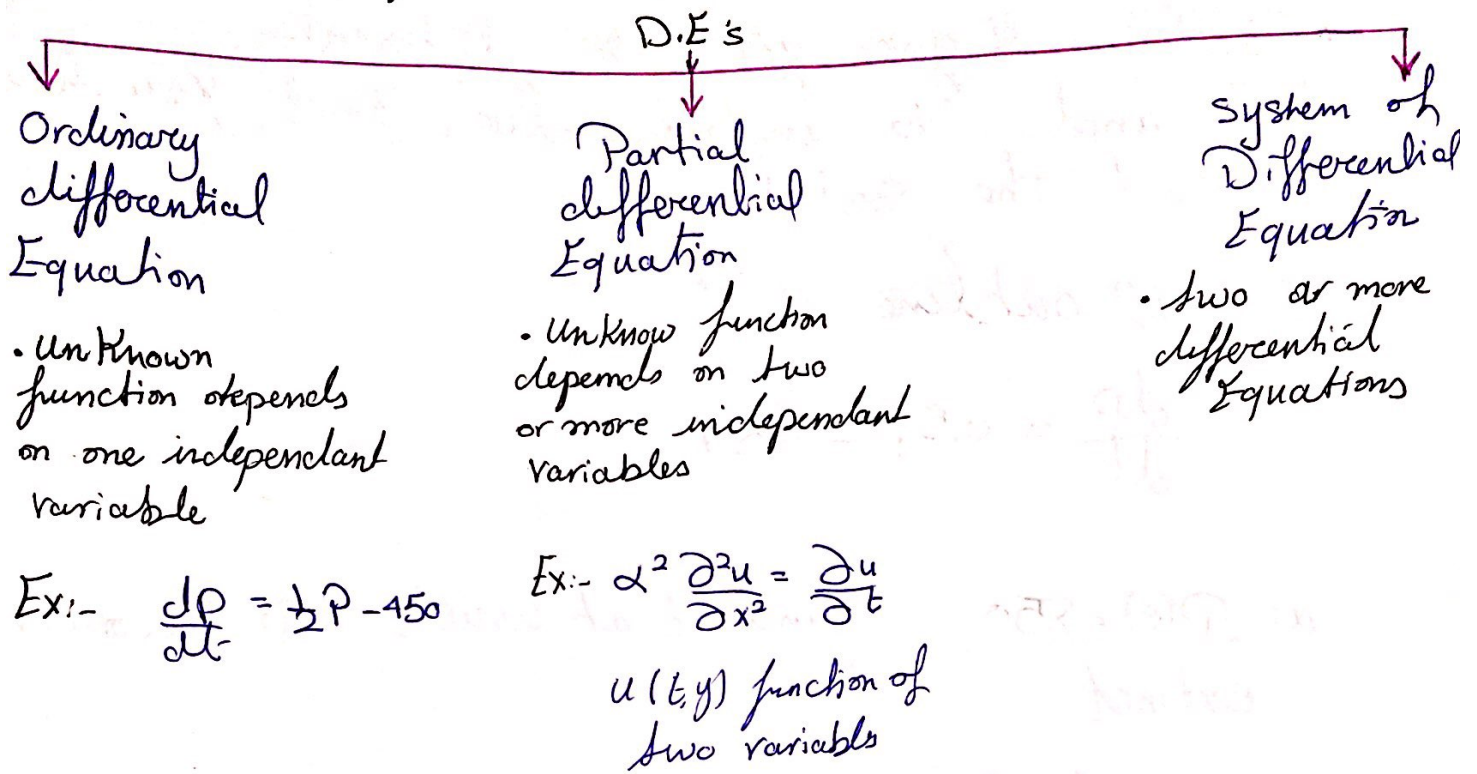 D.E's
Ordinary
differential
Equation
• Unknown
function depends
on one independant
variable
Ex:- dp/dt = 1/2 P - 450
Partial
differential
Equation
• Unknow function
depends on two
or more independant
variables
Ex:- α² ∂²u/∂x² = ∂u/∂t
u(t,y) function of
two variables
System of
Differential
Equation
• two or more
differential
Equations